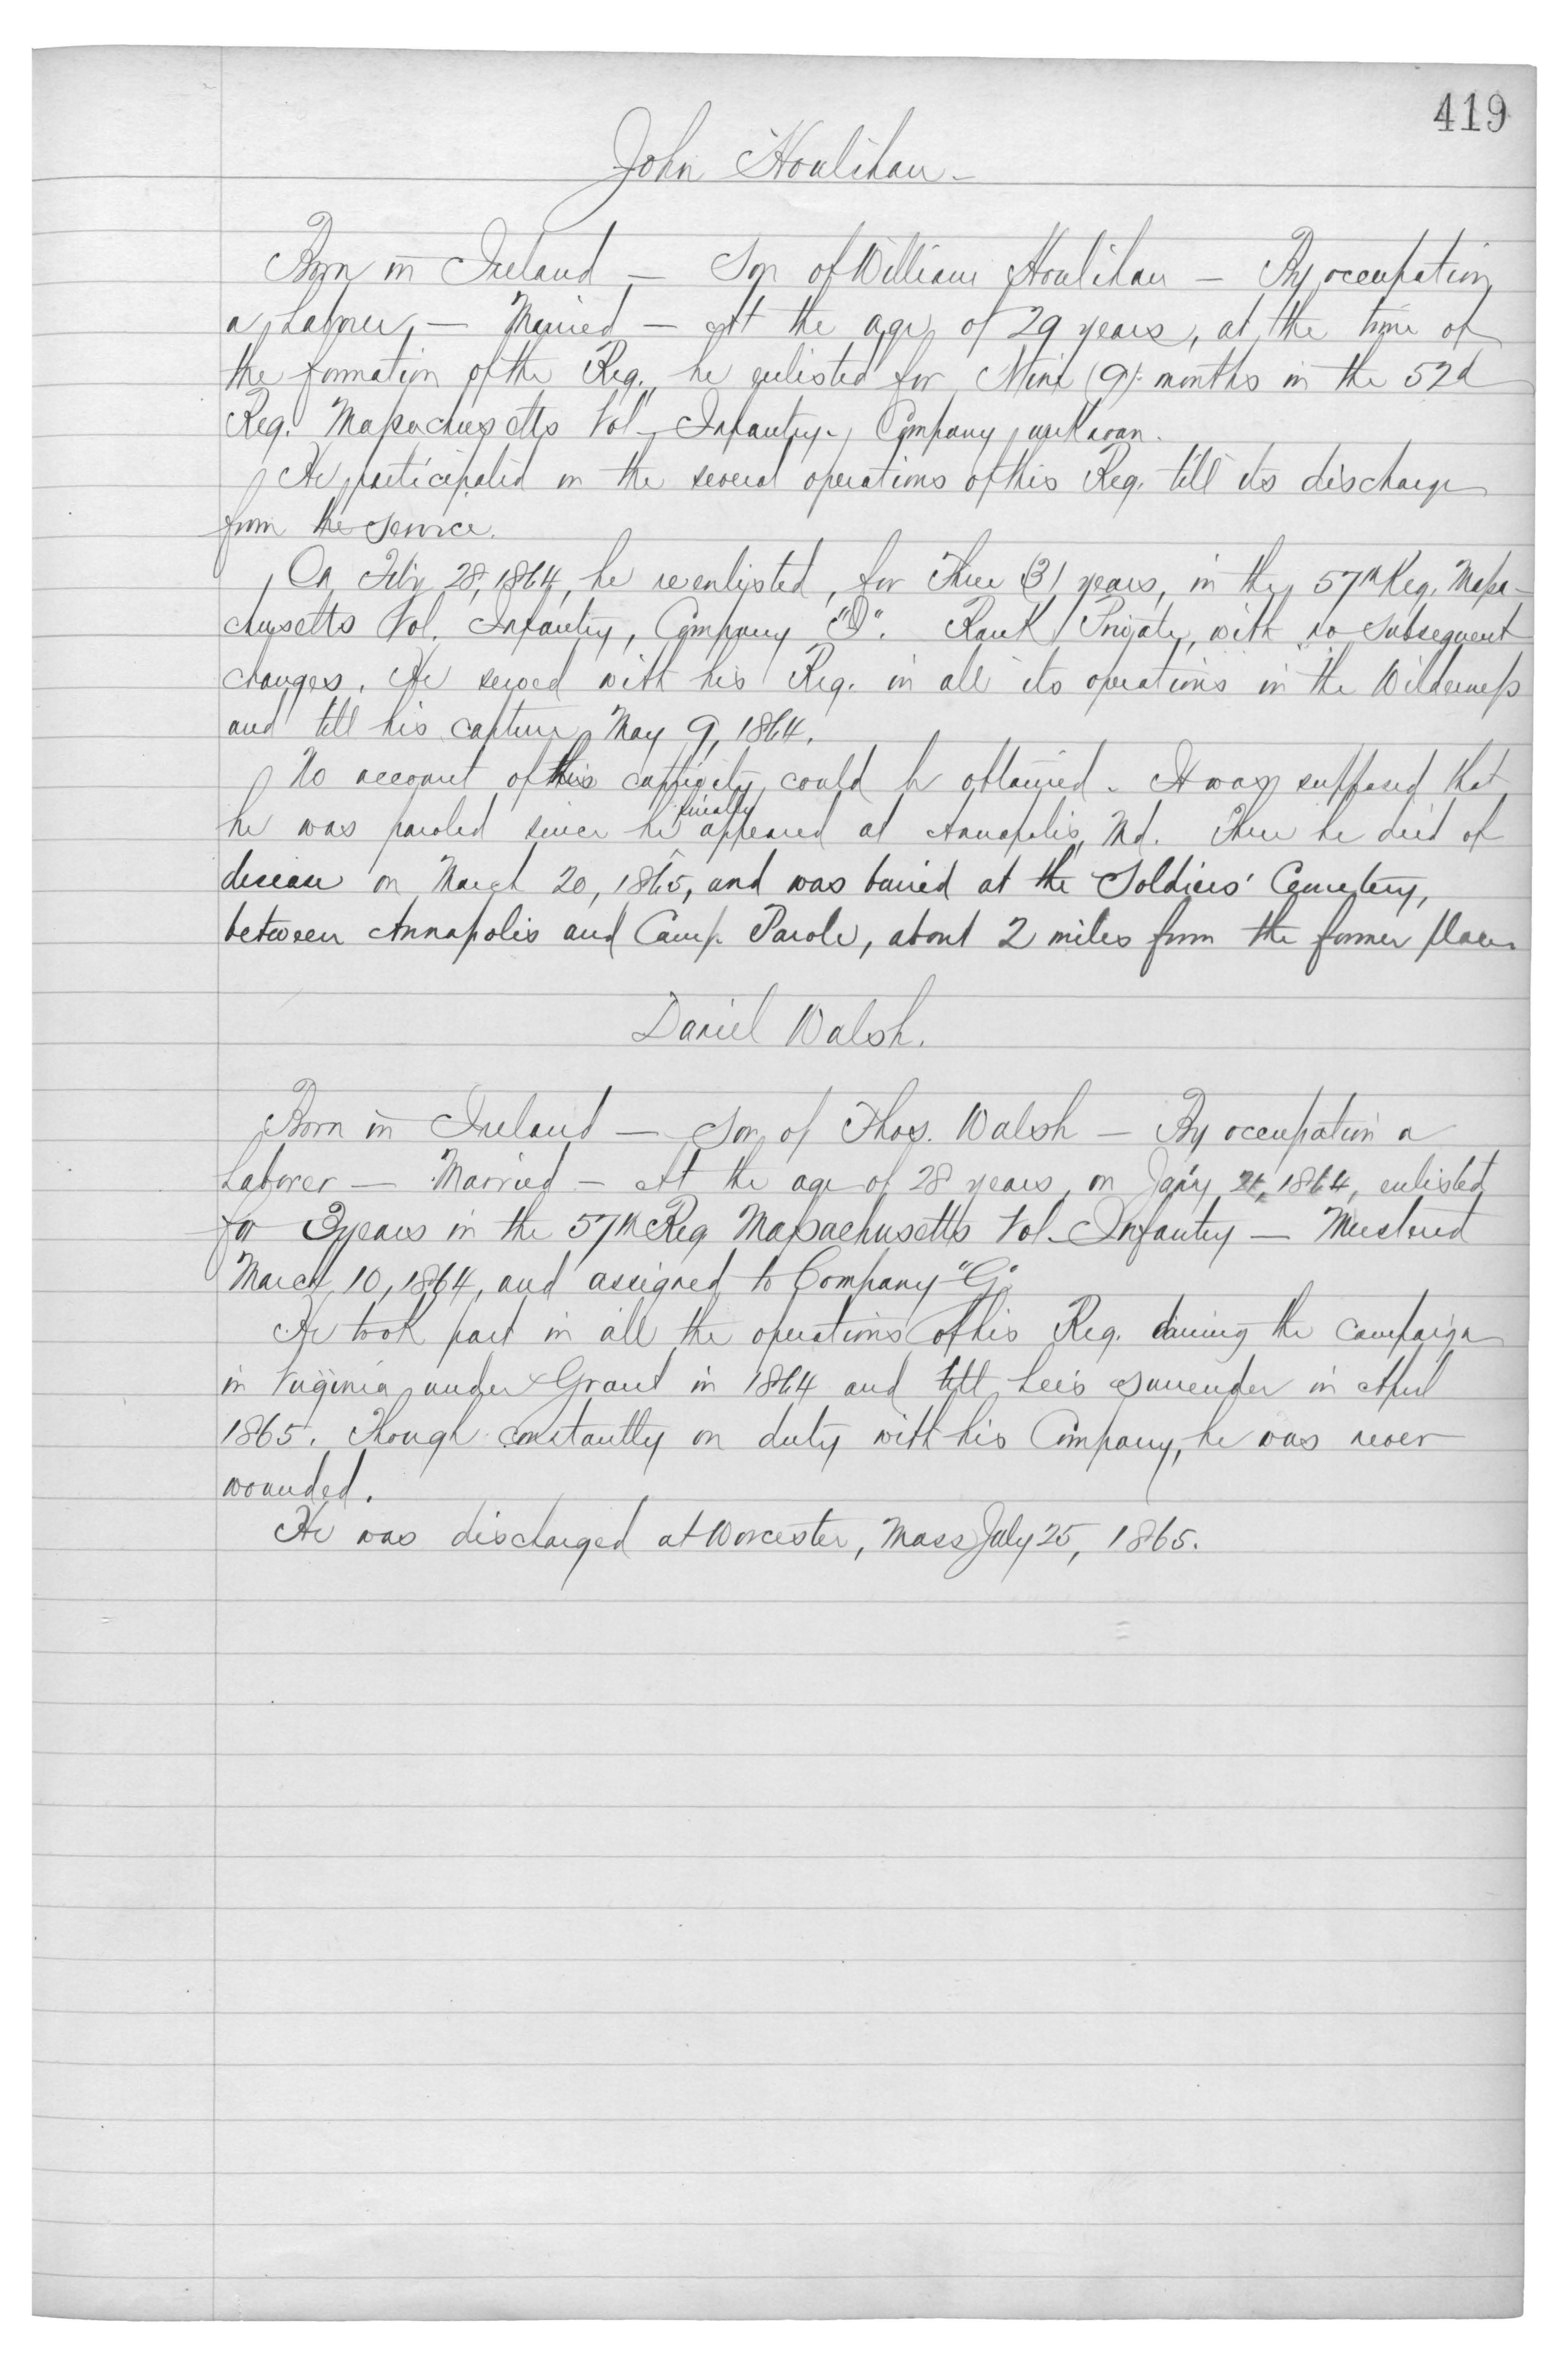 419
John Houlihan -
Born in Ireland - Son of William Houlihan - By occupation
a Laborer, - Married - At the age of 29 years, at the time of
the formation of the Reg., he enlisted for Nine (9) months in the 52d
Reg. Massachusetts Vol. Infantry, Company unknown.
He participated in the several operations of his Reg. till its discharge
from the service.
On Feb'y 28, 1864, he reenlisted, for Three (3) years, in the 57th Reg. Massa-
chusetts Vol. Infantry, Company Rank Private, with no subsequent
changes. He served with his Reg. in all its operations in the Wilderness
and till his capture May 9, 1864.
No account of his captivity could be obtained. It was supposed that
he was paroled since he finally appeared at Annapolis, Md. There he died of
disease on March 20, 1865, and was buried at the Soldiers' Cemetery,
between Annapolis and Camp Parole, about 2 miles from the former place.
Daniel Walsh.
Born in Ireland - Son of Thos. Walsh - By occupation a
Laborer - Married - At the age of 28 years, on Jan'y 1864, enlisted
for 3 years in the 57th Reg Massachusetts Vol. Infantry - Mustered
March 10, 1864, and assigned to Company "G"
He took part in all the operations of his Reg. during the campaign
in Virginia under Grant in 1864 and till Lee's surrender in April
1865. Though constantly on duty with his Company, he was never
wounded.
He was discharged at Worcester, Mass July 25, 1865.